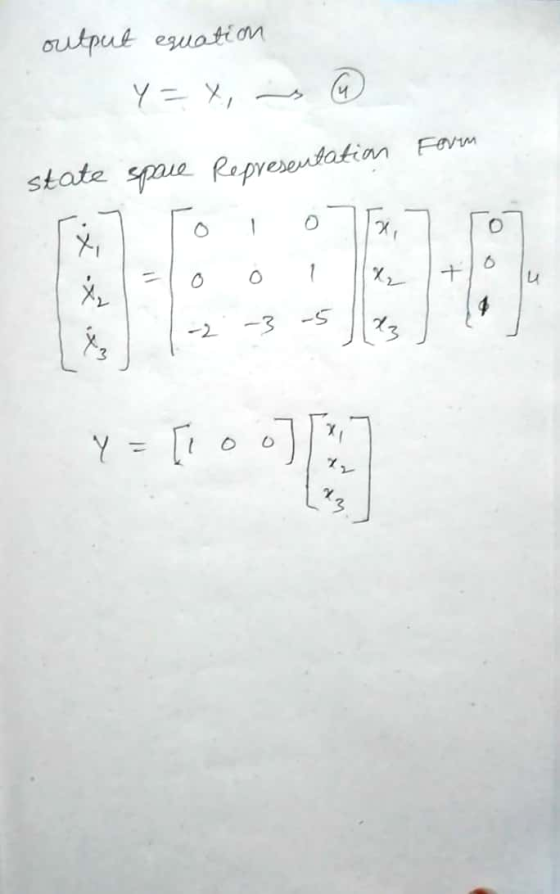 output equation
Y = X₁ → ④
state space Representation Form
[ẋ₁ ẋ₂ ẋ₃] = [0 1 0; 0 0 1; -2 -3 -5] [x₁ x₂ x₃] + [0 0 1] u
Y = [1 0 0] [x₁ x₂ x₃]